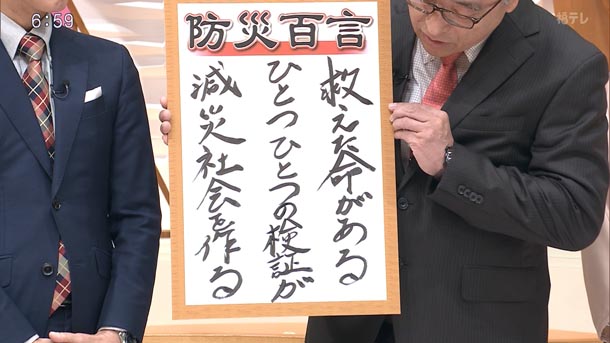 6:59
福テレ
防災百言
救えた命がある
ひとつひとつの検証が
減災社会を作る